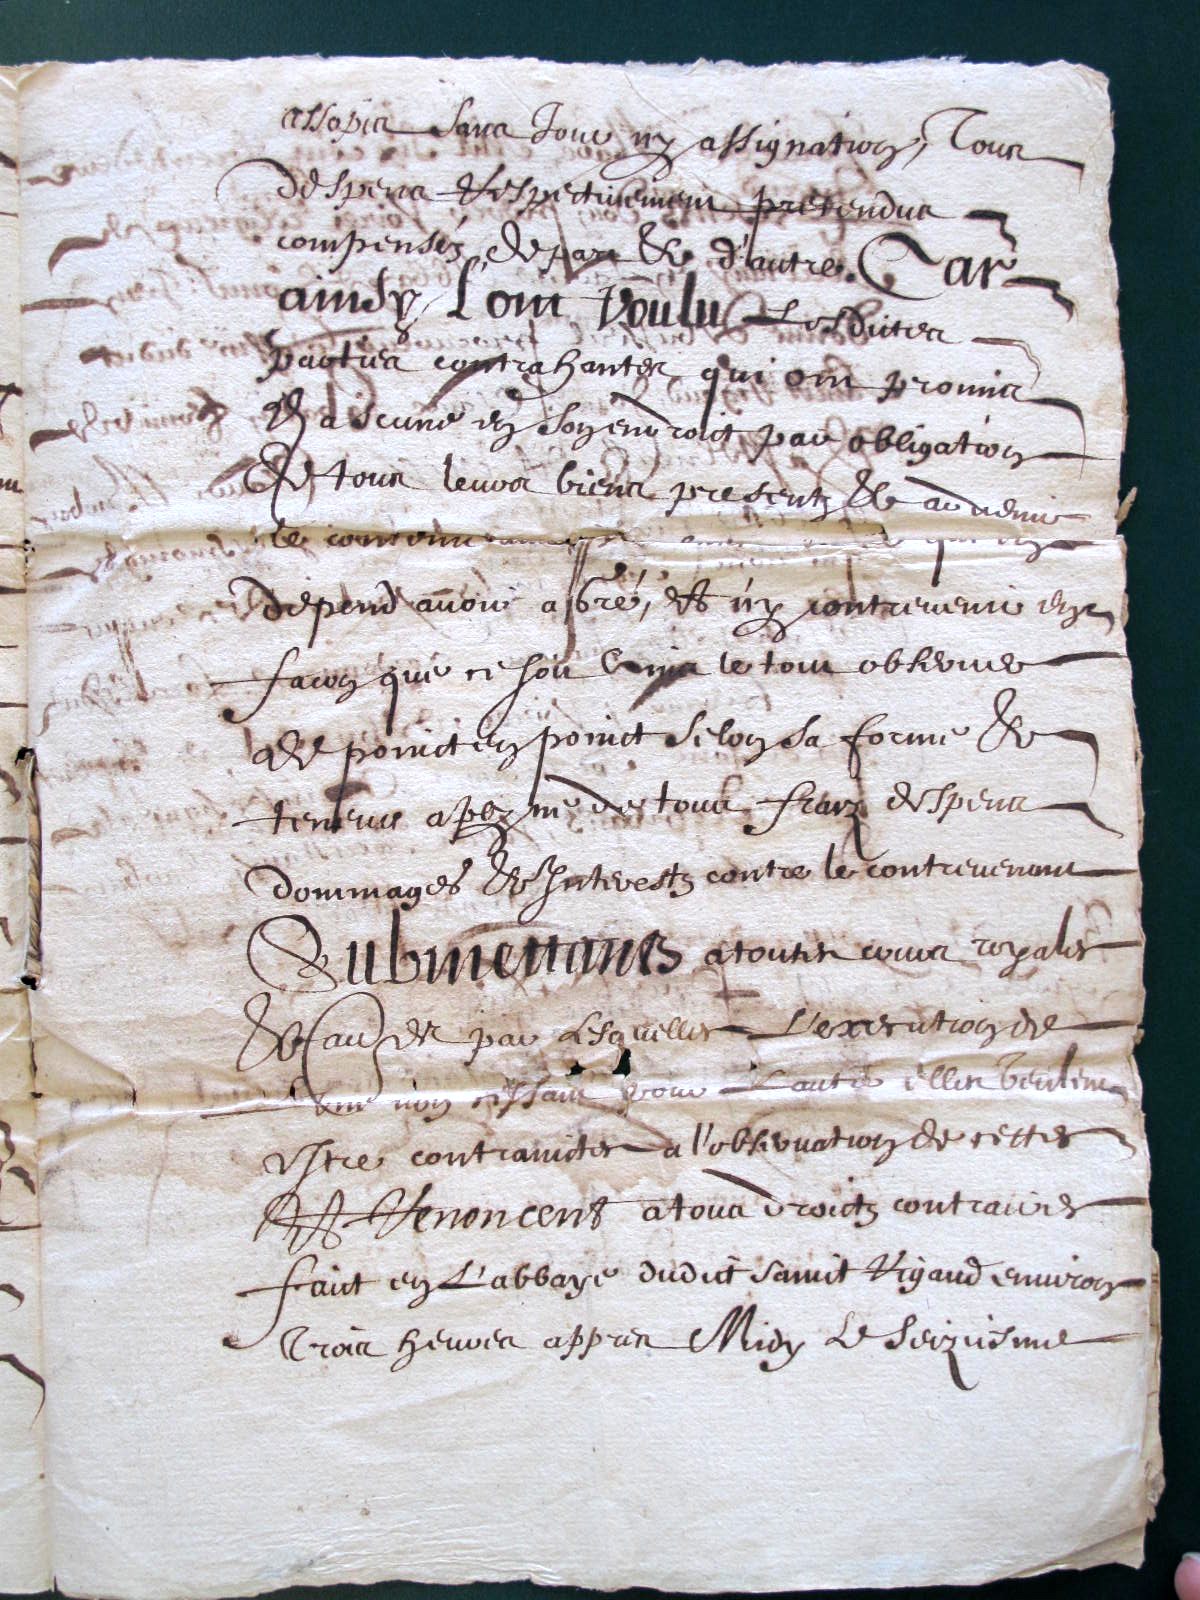 assopis sans jour ny assignation, Tous
despens respectivement pretendus
compensés de part & d'autre. Car
ainsy l'ont voulu Lesdites
parties contrahantes qui ont promis
& chascune en son endroict par obligation
de tous leurs biens presentz & advenir
le contenu qui en
depend avoir agréé, & n'y contrevenir en
facon que ce soit ains le tout observer
de poinct en poinct selon sa forme &
teneur a peyne de tous fraiz despens
dommages & Interestz contre le contrevenant
Submettants a toutes cours royales
& par Lesquelles L'execution de
l'une non cessant pour L'autre elles veulent
estre contrainctes a l'observation de cestes
Et Renoncent a tous droictz contraires
faict en L'abbaye dudict sainct Rigaud environ
Trois heures appres Midy Le seiziesme